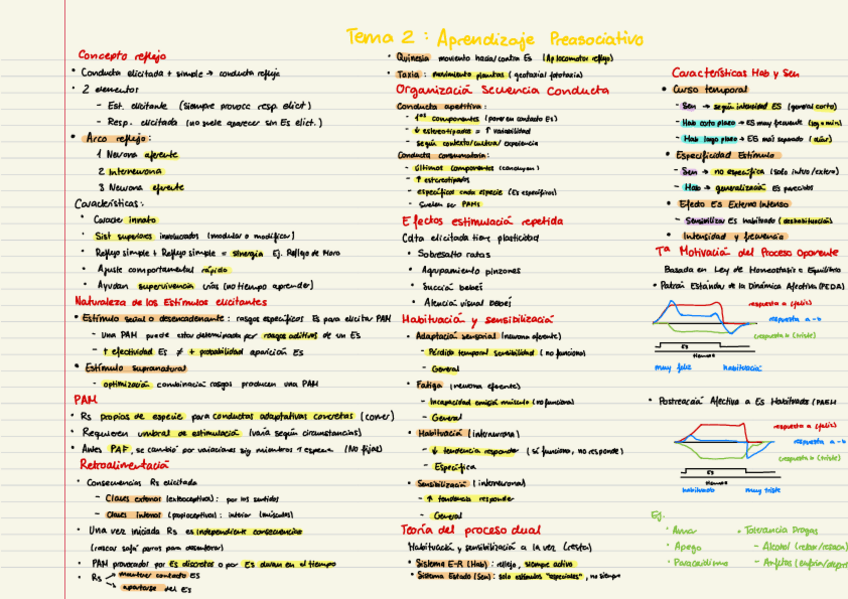 Tema 2 : Aprendizaje Preasociativo
Concepto reflejo
• Conducta elicitada + simple → conducta refleja
• 2 elementos
- Est. elicitante (siempre provoca resp. elict)
- Resp. elicitada (no suele aparecer sin Es elict.)
• Arco reflejo:
1 Neurona aferente
2 Interneurona
3 Neurona eferente
Características:
• Caracter innato
• Sist superiores involucrados (modular o modificar)
• Reflejo simple + Reflejo simple = sinergia Ej. Reflejo de Moro
• Ajuste comportamental rápido
• Ayudan supervivencia crías (no tiempo aprender)
Naturaleza de los Estímulos elicitantes
• Estímulo señal o desencadenante: rasgos específicos Es para elicitar PAM
- Una PAM puede estar determinada por rasgos aditivos de un Es
- ↑ efectividad Es ≠ + probabilidad aparición Es
• Estímulo supranatural
- optimización combinación rasgos producen una PAM
PAM
• Rs propias de especie para conductas adaptativas concretas (comer)
• Requieren umbral de estimulación (varía según circunstancias)
• Antes PAF, se cambió por variaciones sig miembros ≠ especie (No fijas)
Retroalimentación
• Consecuencias Rs elicitada
- Claves externas (exteroceptiva): por los sentidos
- Claves internas (propioceptiva): interior (músculos)
• Una vez iniciada Rs es independiente consecuencias
(rascar sofá perros para desenterrar)
• PAM provocador por Es discretos o por Es duran en el tiempo
• Rs → mantener contacto Es
→ apartarse del Es
• Quinesia movimiento hacia/contra Es (Ap locomotor reflejo)
• Taxia: movimiento plantas (geotaxia/fototaxia)
Organización Secuencia Conducta
Conducta apetitiva:
- 1ºs componentes (poner en contacto Es)
- ↓ estereotipados = ↑ variabilidad
- según contexto/cultura/experiencia
Conducta consumatoria:
- últimos componentes (concluyen)
- ↑ estereotipados
- específicas cada especie (Es específicos)
- Suelen ser PAMs
Efectos estimulación repetida
Cdta elicitada tiene plasticidad
• Sobresalto ratas
• Agrupamiento pinzones
• Succión bebés
• Atención visual bebés
Habituación y sensibilización
• Adaptación sensorial (neurona aferente)
- Pérdida temporal sensibilidad (no funciona)
- General
• Fatiga (neurona eferente)
- Incapacidad emisión músculo (no funciona)
- General
• Habituación (interneurona)
- ↓ tendencia responder (sí funciona, no responde)
- Específica
• Sensibilización (interneurona)
- ↑ tendencia responder
- General
Teoría del proceso dual
Habituación y sensibilización a la vez (resta)
• Sistema E-R (Hab): reflejo, siempre activo
• Sistema Estado (Sen): solo estímulos "especiales", no siempre
Características Hab y Sen
• Curso temporal
- Sen → según intensidad ES (general corto)
- Hab corto plazo → ES muy frecuente (seg o min)
- Hab largo plazo → ES más separado (días)
• Especificidad Estímulo
- Sen → no específica (solo intro/extero)
- Hab → generalización Es parecidos
• Efecto Es Externo Intenso
- Sensibilizar Es habituado (deshabituación)
• Intensidad y frecuencia
Tª Motivación del Proceso Oponente
Basada en Ley de Homeostasis = Equilibrio
• Patrón Estándar de la Dinámica Afectiva (PEDA)
respuesta a (feliz)
respuesta a-b
respuesta b (triste)
Es
tiempo
muy feliz habituación
• Postreacción Afectiva a Es Habituados (PAEH
respuesta a (feliz)
respuesta a-b
respuesta b (triste)
Es
tiempo
habituado muy triste
Ej:
• Amar
• Apego
• Paracaidismo
• Tolerancia Drogas
- Alcohol (relax/resaca)